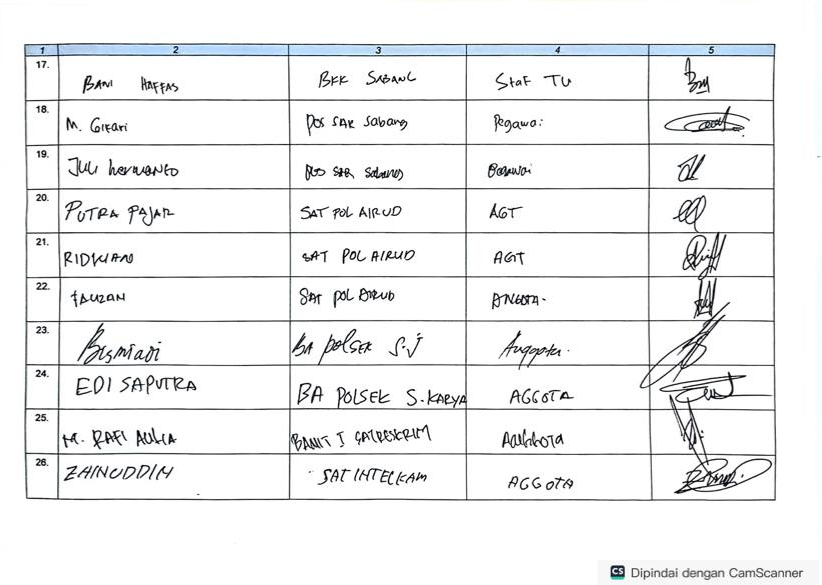 1 2 3 4 5
17. BANI HAFFAS BKK SABANG Staf TU
18. M. Gifari Pos SAR Sabang Pegawai
19. JULI hermanto Pos SAR Sabang
20. PUTRA PAJAR SAT POL AIRUD AGT
21. RIDWAN SAT POL AIRUD AGT
22. FAUZAN SAT POL AIRUD ANGOTA.
23. Bismiadi BA POLSEK S.J Anggota.
24. EDI SAPUTRA BA POLSEK S.KARYA AGGOTA
25. M. RAFI AULIA BANIT I SATRESKRIM
26. ZAINUDDIN SAT INTELKAM AGGOTA
CS Dipindai dengan CamScanner